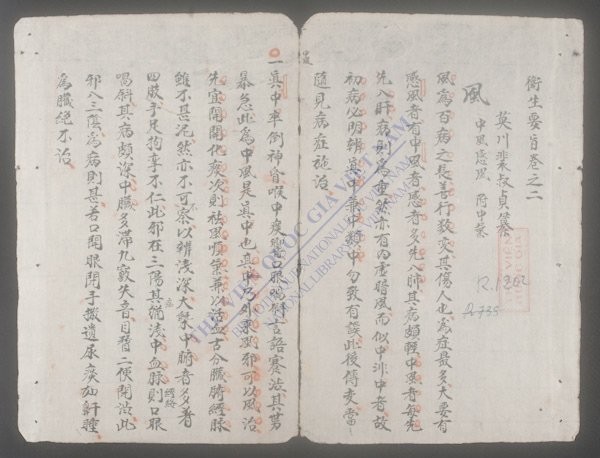 衛生要旨卷之二
莫川裴叔貞
風
中風感風 附中
風為百病之長善行數变其傷人也為症最多大要有
感風者有中風者感者多先入肺其病頗輕中風者每先
先入肝病則為重然亦有内虚暗風而似中非中者故
初病必明辨真中兼中類中勿致有誤此後傳变當
隨見病症施治
一真中卒倒神昏喉中痰响口眼喎斜言語蹇澁其势
暴急此為中風是真中也真中乃外來風邪可以風治
先宜開關化痰次則祛風順氣兼以活血古分臟腑經脉
雖不甚泥然亦不可不察以辨淺深大槩中腑者多着
四肢手足拘孪不仁此邪在三陽其病淺中血脉則口眼
喎斜其病頗深中臟多滯九竅失音目瞀二便閉此
邪入三陰為病則甚若口開眼閉手撒遺尿痰如鼾睡
為臟絶不治
R.1362
THƯ VIỆN QUỐC GIA VIỆT NAM
NATIONAL LIBRARY